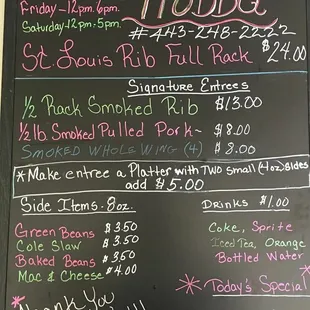 Friday-12pm-6pm.
Saturday-12pm-5pm.
#443-248-2222
St. Louis Rib Full Rack $24.00
Signature Entrees
1/2 Rack Smoked Rib $13.00
1/2 lb Smoked Pulled Pork- $8.00
SMOKED WHOLE WING (4) $8.00
*Make entree a Platter with TWO small (4oz) sides
add $5.00
Side Items-8oz.
Green Beans $3.50
Cole Slaw $3.50
Baked Beans $3.50
Mac & Cheese $4.00
DRINKS $1.00
Coke, Sprite
Iced Tea, Orange
Bottled Water
*Today's Special*
Thank You